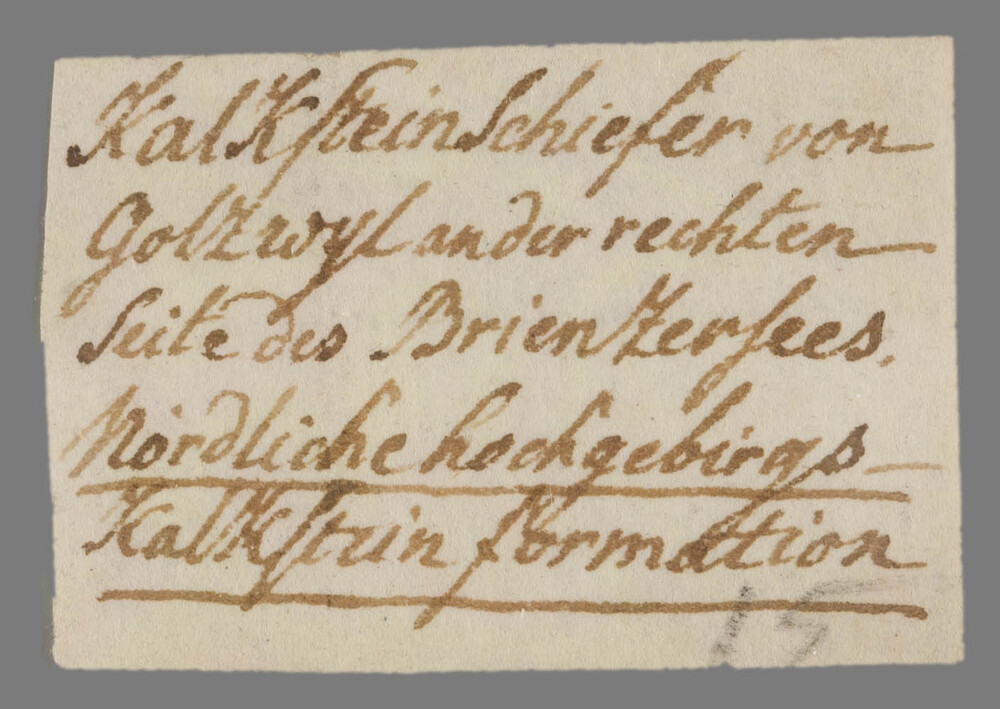 KalKſteinSchiefer von
Golzwyl an der rechten
Seite des Brienzerſees.
Nördliche hochgebirgs
KalKſtein formation
15